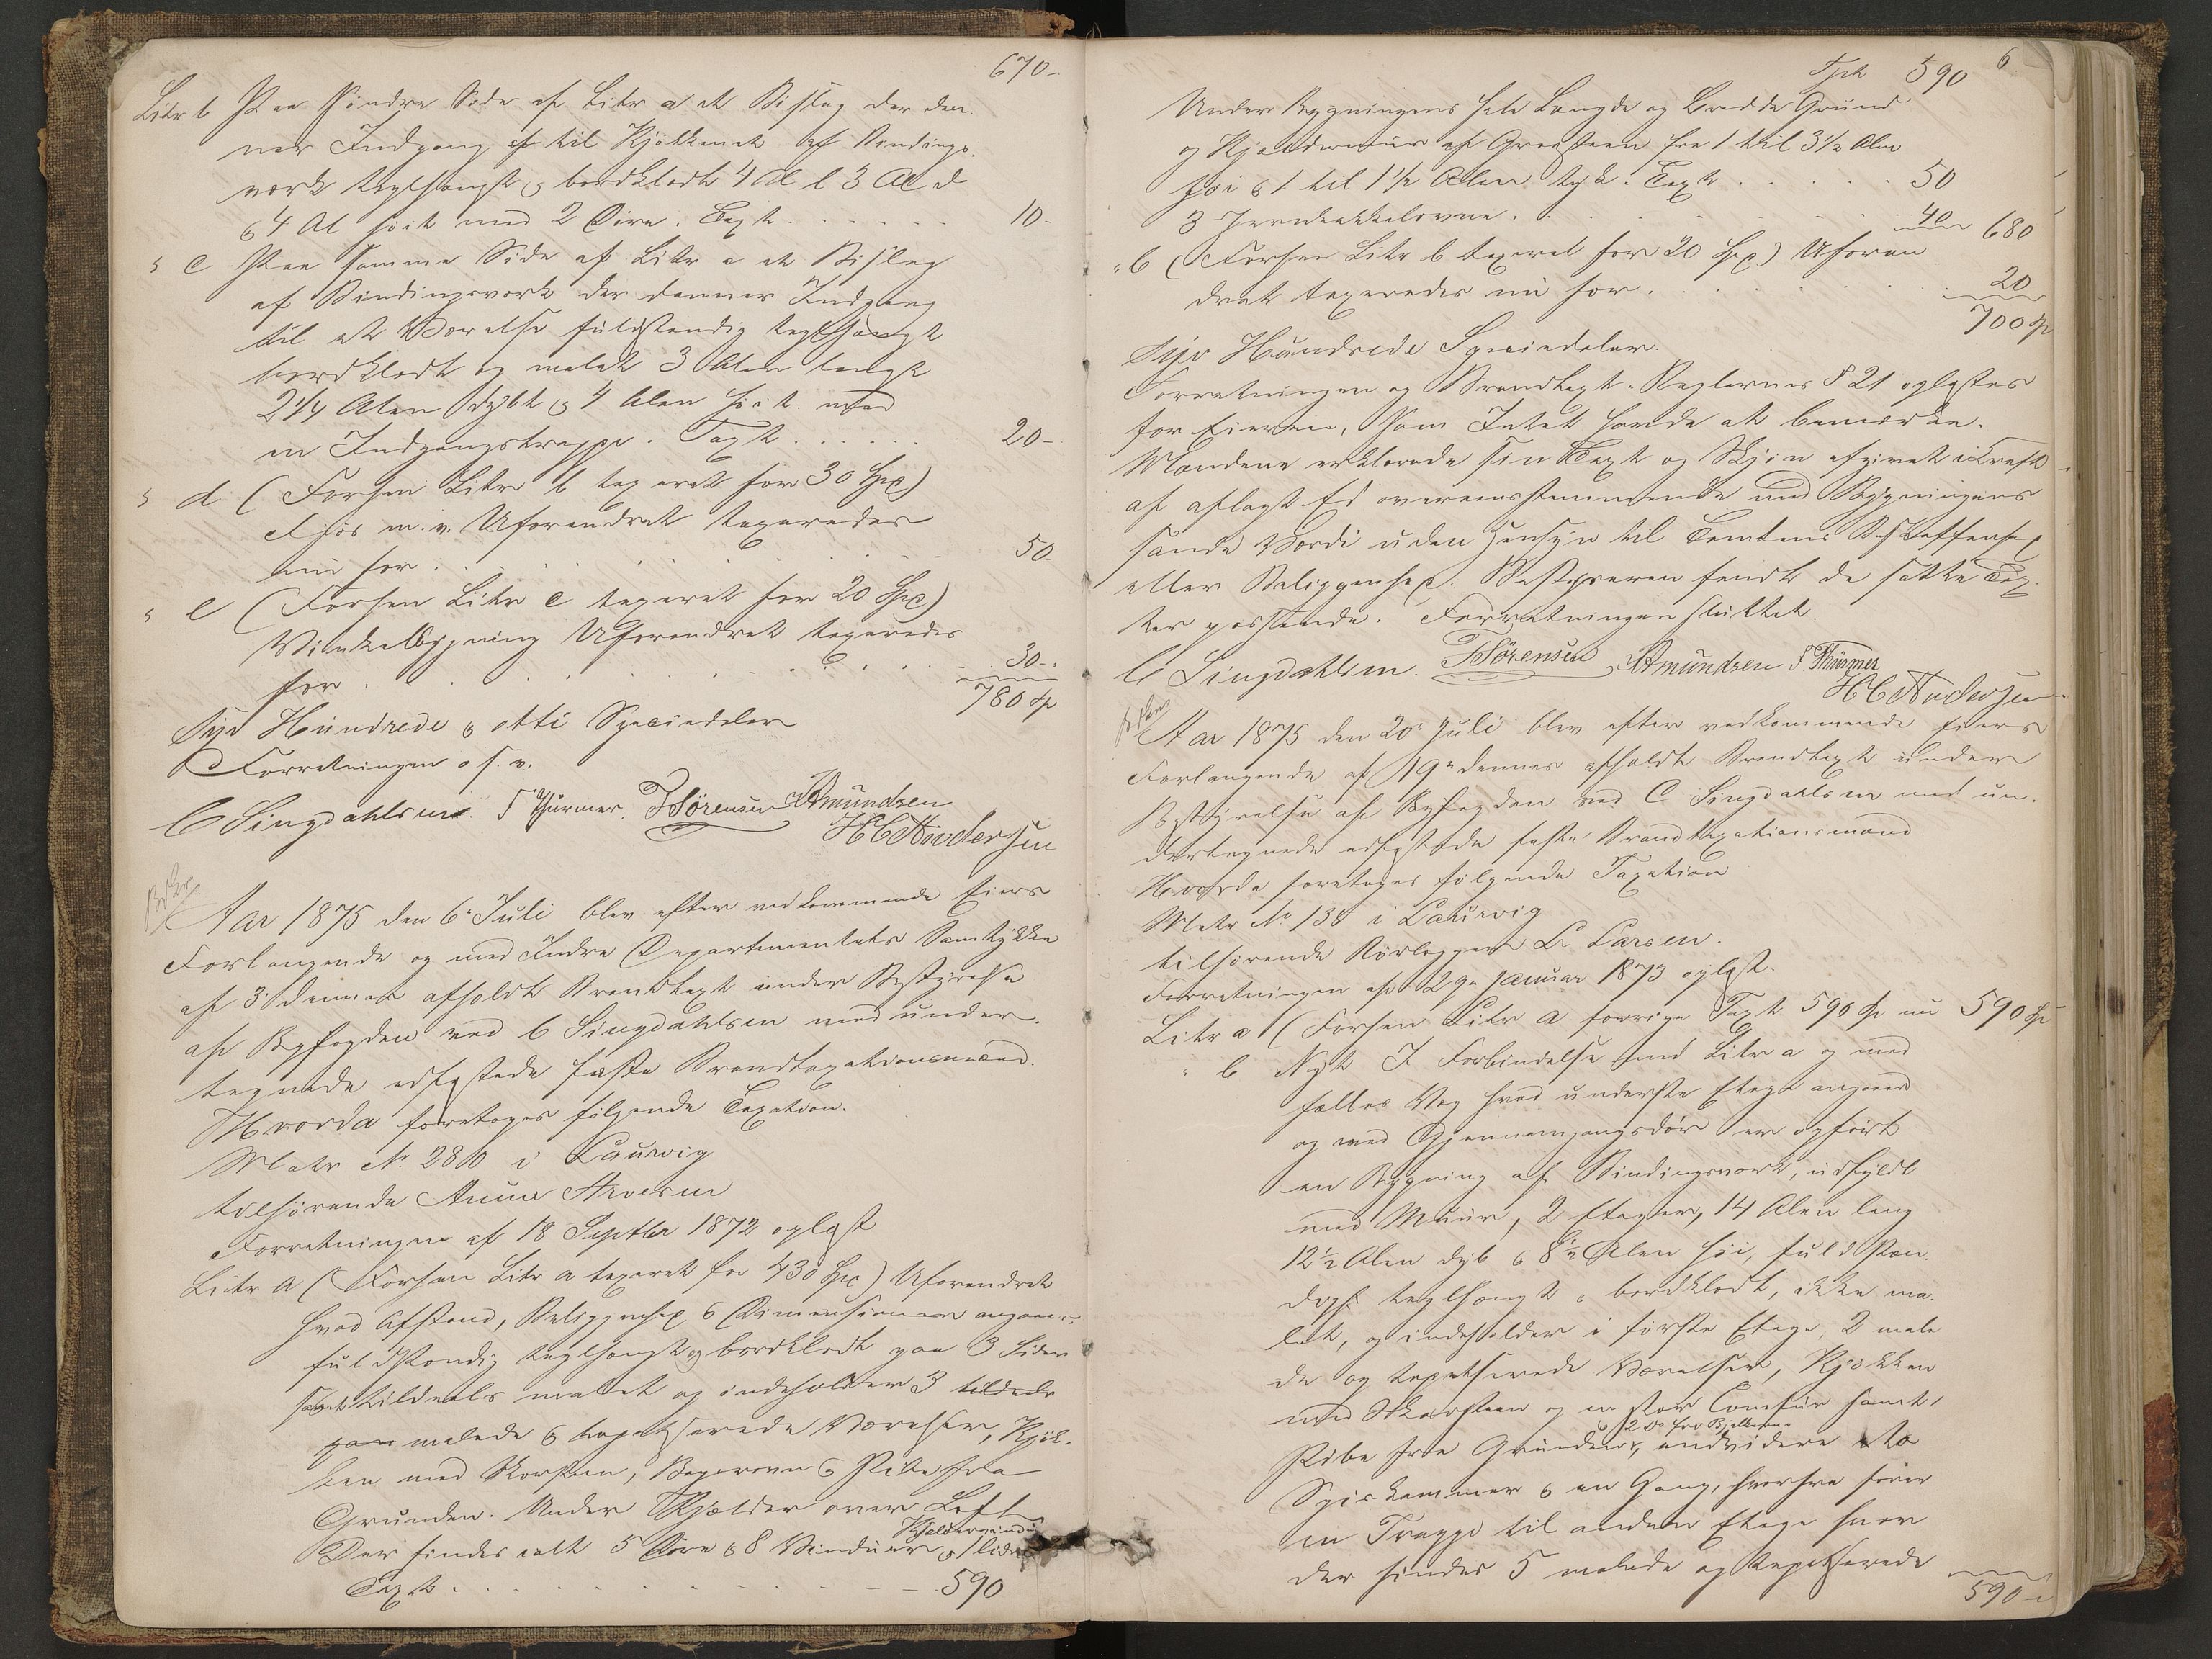 670-
Litr b Paa søndre Side af Litr a et Bislag der dan-
ner Indgang af til Kjøkkenet af Bindings-
værk teglhængt og bordklædt 4 Al l 3 Al d
& 4 Al høit med 2 Døre. Taxt . . . . . . 10-
" c Paa samme Side af Litr a et Bislag
af Bindingsværk der danner Indgang
til et Værelse fuldstændig teglhængt
bordklædt og malet 3 Alen langt
2 1/4 Alen dybt og 4 Alen høit med
en Indgangstrappe. Taxt . . . . . . 20-
" d (Forhen Litr b taxeret for 30 Spd)
Uforandret taxeredes
nu for . . . . . . 50-
" e (Forhen Litr c taxeret for 20 Spd)
Vinkelbygning Uforandret taxeredes
for . . . . . . 30-
780 Sp
Syv Hundrede & otti Speciedaler
Forretningen o. s. v.
C Singdahlsen. F Thürmer. T Sørensen Amundsen
H C Andersen
Aar 1875 den 6 Juli blev efter vedkommende Eiers
Forlangende og med Indre Departementets Samtykke
af 3 dennes afholdt Brandtaxt under Bestyrelse
af Byfogden ved C Singdahlsen med under-
tegnede edfæstede faste Brandtaxationsmænd.
Hvorda foretoges følgende Taxation.
Matr No 280 i Laurvig
tilhørende Anne Arvesen
Forretningen af 18 Septbr 1872 oplæst
Litr a (Forhen Litr a taxeret for 430 Spd) Uforandret
hvad Afstand, Beliggenhed & Dimensioner angaaer
fuldstændig teglhængt og bordklædt paa 3 Sider
samt tildeels malet og indeholder 3 tildeels
malede & tapetserede Værelser, Kjøk-
ken med Skorsten, Bagerovn & Pibe fra
Grunden. Under Kjælder over Loft
Der findes ialt 5 Døre & 8 Vinduer & 1 lidet Kjeldervindu
Taxt . . . . . . 590
6
Tpt 590
Under Bygningens hele Længde og Bredde Grund
og Kjældermuur af Graasteen fra 1 til 3 1/2 Alen
høi & 1 til 1 1/2 Alen tyk. Taxt . . . . . . 50
3 Jernkakkelovne . . . . . . 40 680
" b (Forhen Litr b taxeret for 20 Spd) Uforan-
dret taxeredes nu for . . . . . . 20
700 Sp
Syv Hundrede Speciedaler.
Forretningen og Brandtaxt-Reglernes § 21 oplæstes
for Eieren, som Intet havde at bemærke.
Mændene erklærede sin Taxt og Skjøn afgivet i Kraft
af aflagt Ed overeensstemmende med Bygningens
sande Værdi uden Hensyn til Tomtens Beskaffenhed
eller Beliggenhed. Bestyreren fandt de satte Tax-
ter passende. Forretningen sluttet.
C Singdahlsen. T Sørensen Amundsen F Thürmer
H C Andersen
Aar 1875 den 20 Juli blev efter vedkommende Eiers
Forlangende af 19 dennes afholdt Brandtaxt under
Bestyrelse af Byfogden ved C Singdahlsen med un-
dertegnede edfæstede faste Brandtaxationsmænd
Hvorda foretoges følgende Taxation
Matr No 138 i Laurvig
tilhørende Rørlægger L. Larsen.
Forretningen af 29 Januar 1873 oplæst.
Litr a (Forhen Litr a forrige Taxt 590 Sp nu 590 Sp
" b Nyt I Forbindelse med Litr a og med
fælles Væg hvad underste Etage angaaer
og med Gjennemgangsdør er opført
en Bygning af Bindingsværk, udfyldt
med Muur, 2 Etager, 14 Alen lang
12 1/2 Alen dyb & 8 1/2 Alen høi, fuldstæn-
digt teglhængt & bordklædt, ikke ma-
let, og indeholder i første Etage, 2 male-
de og tapetserede Værelser, Kjøkken
med Skorsteen og en stor Comfur samt
Pibe fra Grunden & 2 Do fra Bjelkerne, endvidere
Spiskammer & en Gang, hvorfra fører
en Trappe til anden Etage hvor
der findes 5 malede og tapetserede
590